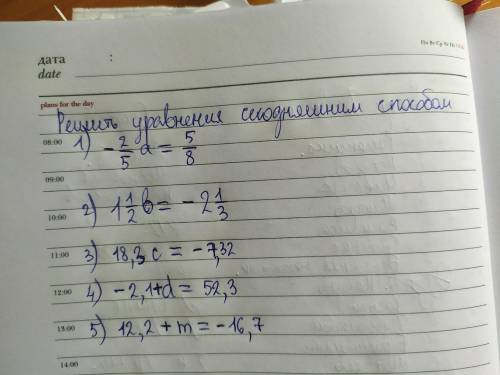 Пн Вт Ср Чт Пт Сб Вс
дата :
date
plans for the day
Решить уравнения сегодняшним способом
08:00 1) -2/5 a = 5/8
09:00
10:00 2) 1 1/2 b = - 2 1/3
11:00 3) 18,3 c = -7,32
12:00 4) -2,1+d = 52,3
13:00 5) 12,2 + m = -16,7
14:00